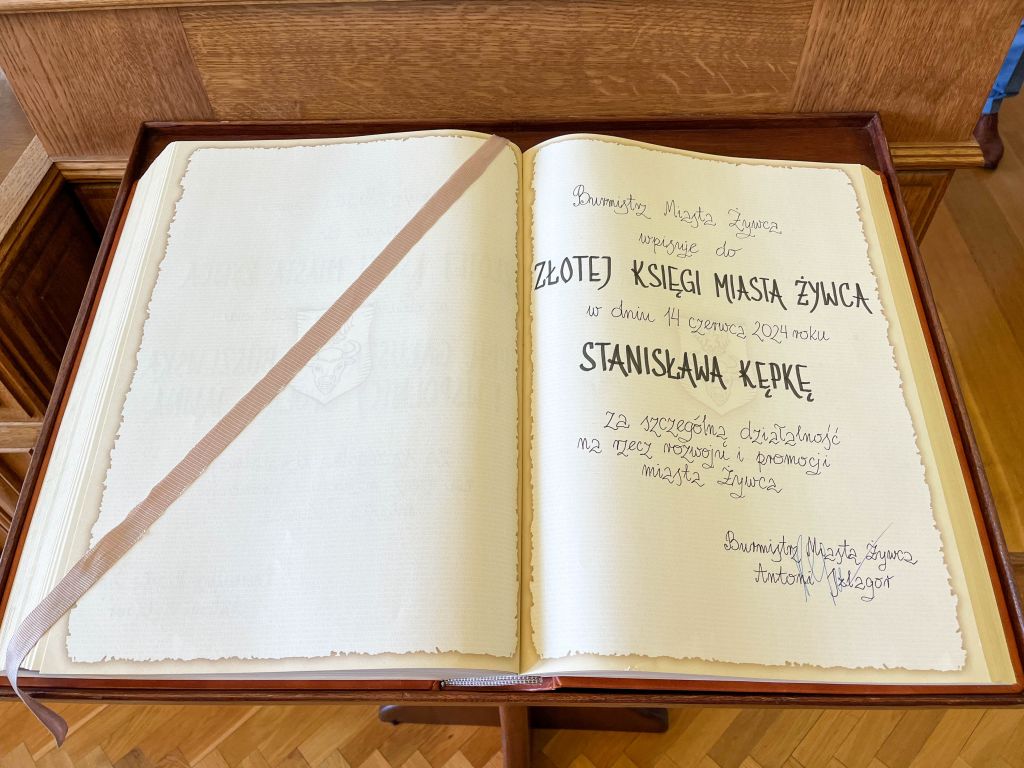 Burmistrz Miasta Żywca
wpisuje do
ZŁOTEJ KSIĘGI MIASTA ŻYWCA
w dniu 14 czerwca 2024 roku
STANISŁAWA KĘPKĘ
za szczególną działalność
na rzecz rozwoju i promocji
miasta Żywca
Burmistrz Miasta Żywca
Antoni Szlagor